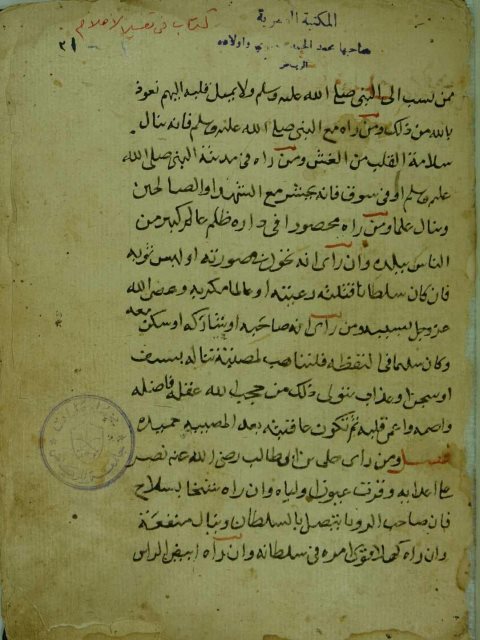 كتاب في تفسير الاحلام
المكتبة
صاحبها محمد الحمد واولاده
٣١
ممن نسب الى النبي صلى الله عليه وسلم ولا يميل قلبه اليهم نعوذ
بالله من ذلك ومن راه مع النبي صلى الله عليه وسلم فانه ينال
سلامة القلب من الغش ومن راه في مدينة النبي صلى الله
عليه وسلم او في سوق فانه يحشر مع الشهدا والصالحين
وينال علما ومن راه محصورا في داره ظلم عالم كبير من
الناس ببلده وان راى انه تحول في صورته او لبس ثوبه
فان كان سلطانا قتلته رعيته او عالما مكر به وعصى الله
عز وجل بسببه ومن راى انه صاحبه او شاركه او سكن معه
وكان سلما في اليقظه فلتناهب لمصيبة تناله بسيف
او سجن او عذاب يتولى ذلك من حجب الله عقله فاضله
واصمه واعمى قلبه ثم تكون عاقبته بعد المصيبه حميده
فصل ومن راى علي بن ابي طالب رضي الله عنه نصر
على اعدايه وقرت عيون اولياه وان راه بسلاح
فان صاحب الرويا يتصل بالسلطان وينال منفعة
وان راه كهلا قوي امره في سلطانه وان راه ابيض الراس